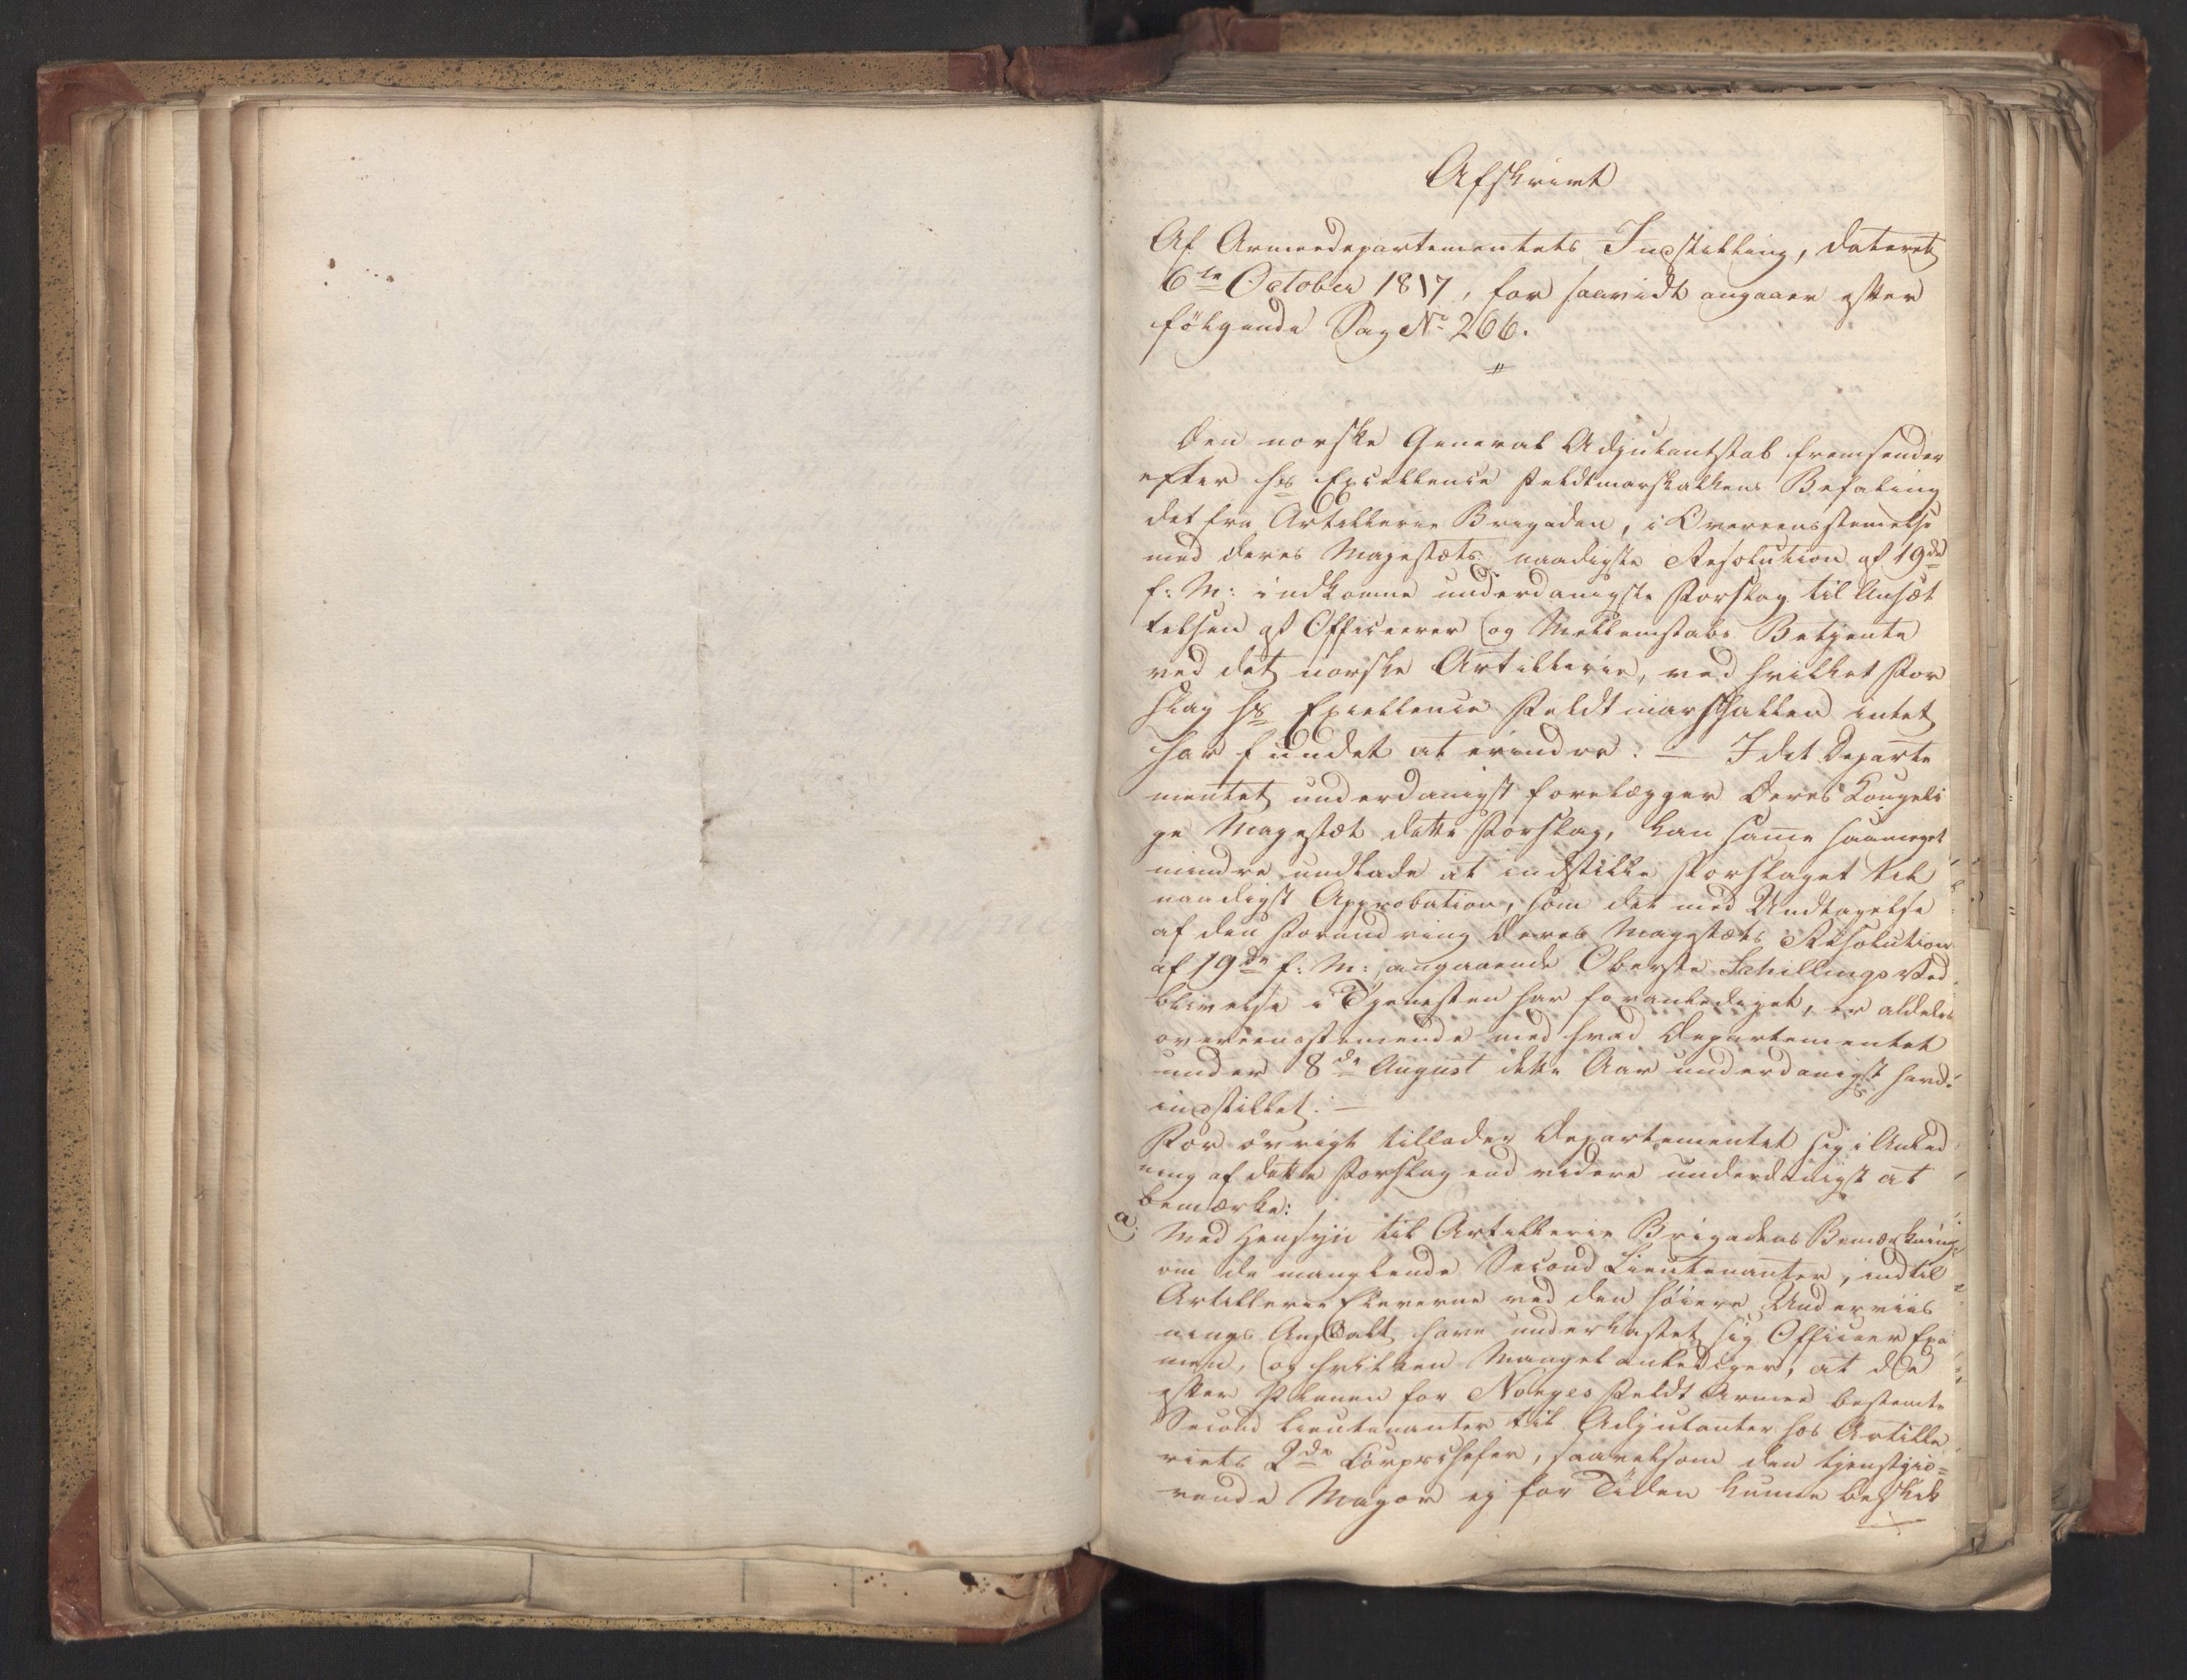 Afskrivt
Af Armeedepartementets Indstilling, dateret
6te October 1817, for saavidt angaaer efter
følgende Sag No 266.
"
Den norske General Adjutantstab fremsender
efter Hs Excellence Feldtmarskalkens Befaling
det fra Artillerie Brigaden, i Overeensstemelse
med Deres Majestæts naadigste Resolution af 19de
f: M: indkomne underdanigste Forslag til Ansæt
telsen af Officeerer og Mellemstabs Betjente
ved det norske Artillerie, ved hvilket For
slag Hs Excellence Feldtmarskallen intet
har fundet at erindre: — I det Departe
mentet underdanigst forelægger Deres Kongeli
ge Majestæt dette Forslag, kan same saameget
mindre undlade at indstille Forslaget til
naadigst Approbation, som det med Undtagelse
af den Forandring Deres Majestæts Resolution
af 19de f: M: angaaende Oberste Schillings Ved
blivelse i Tjenesten har foranlediget, er aldeles
overeenstemende med hvad Departementet
under 8de August dette Aar underdanigst havde
indstillet: —
For øvrigt tillader Departementet sig i Anled
ning af dette Forslag end videre underdanigst at
bemærke:
(a. Med Hensyn til Artillerie Brigadens Bemærkning
om de manglende Second Lieutenanter, indtil
Artillerie Eleverne ved den høiere Underviis
nings Anstalt have underkastet sig Officeer Exa
men, og hvilken Mangel anlediger, at de
efter Planen for Norges Feldt Armee bestemte
Second Lieutenanter til Adjutanter hos Artille
riets 2de Corpschefer, saavelsom den tjenstgjø=
rende Major ej for Tiden kunne beskik